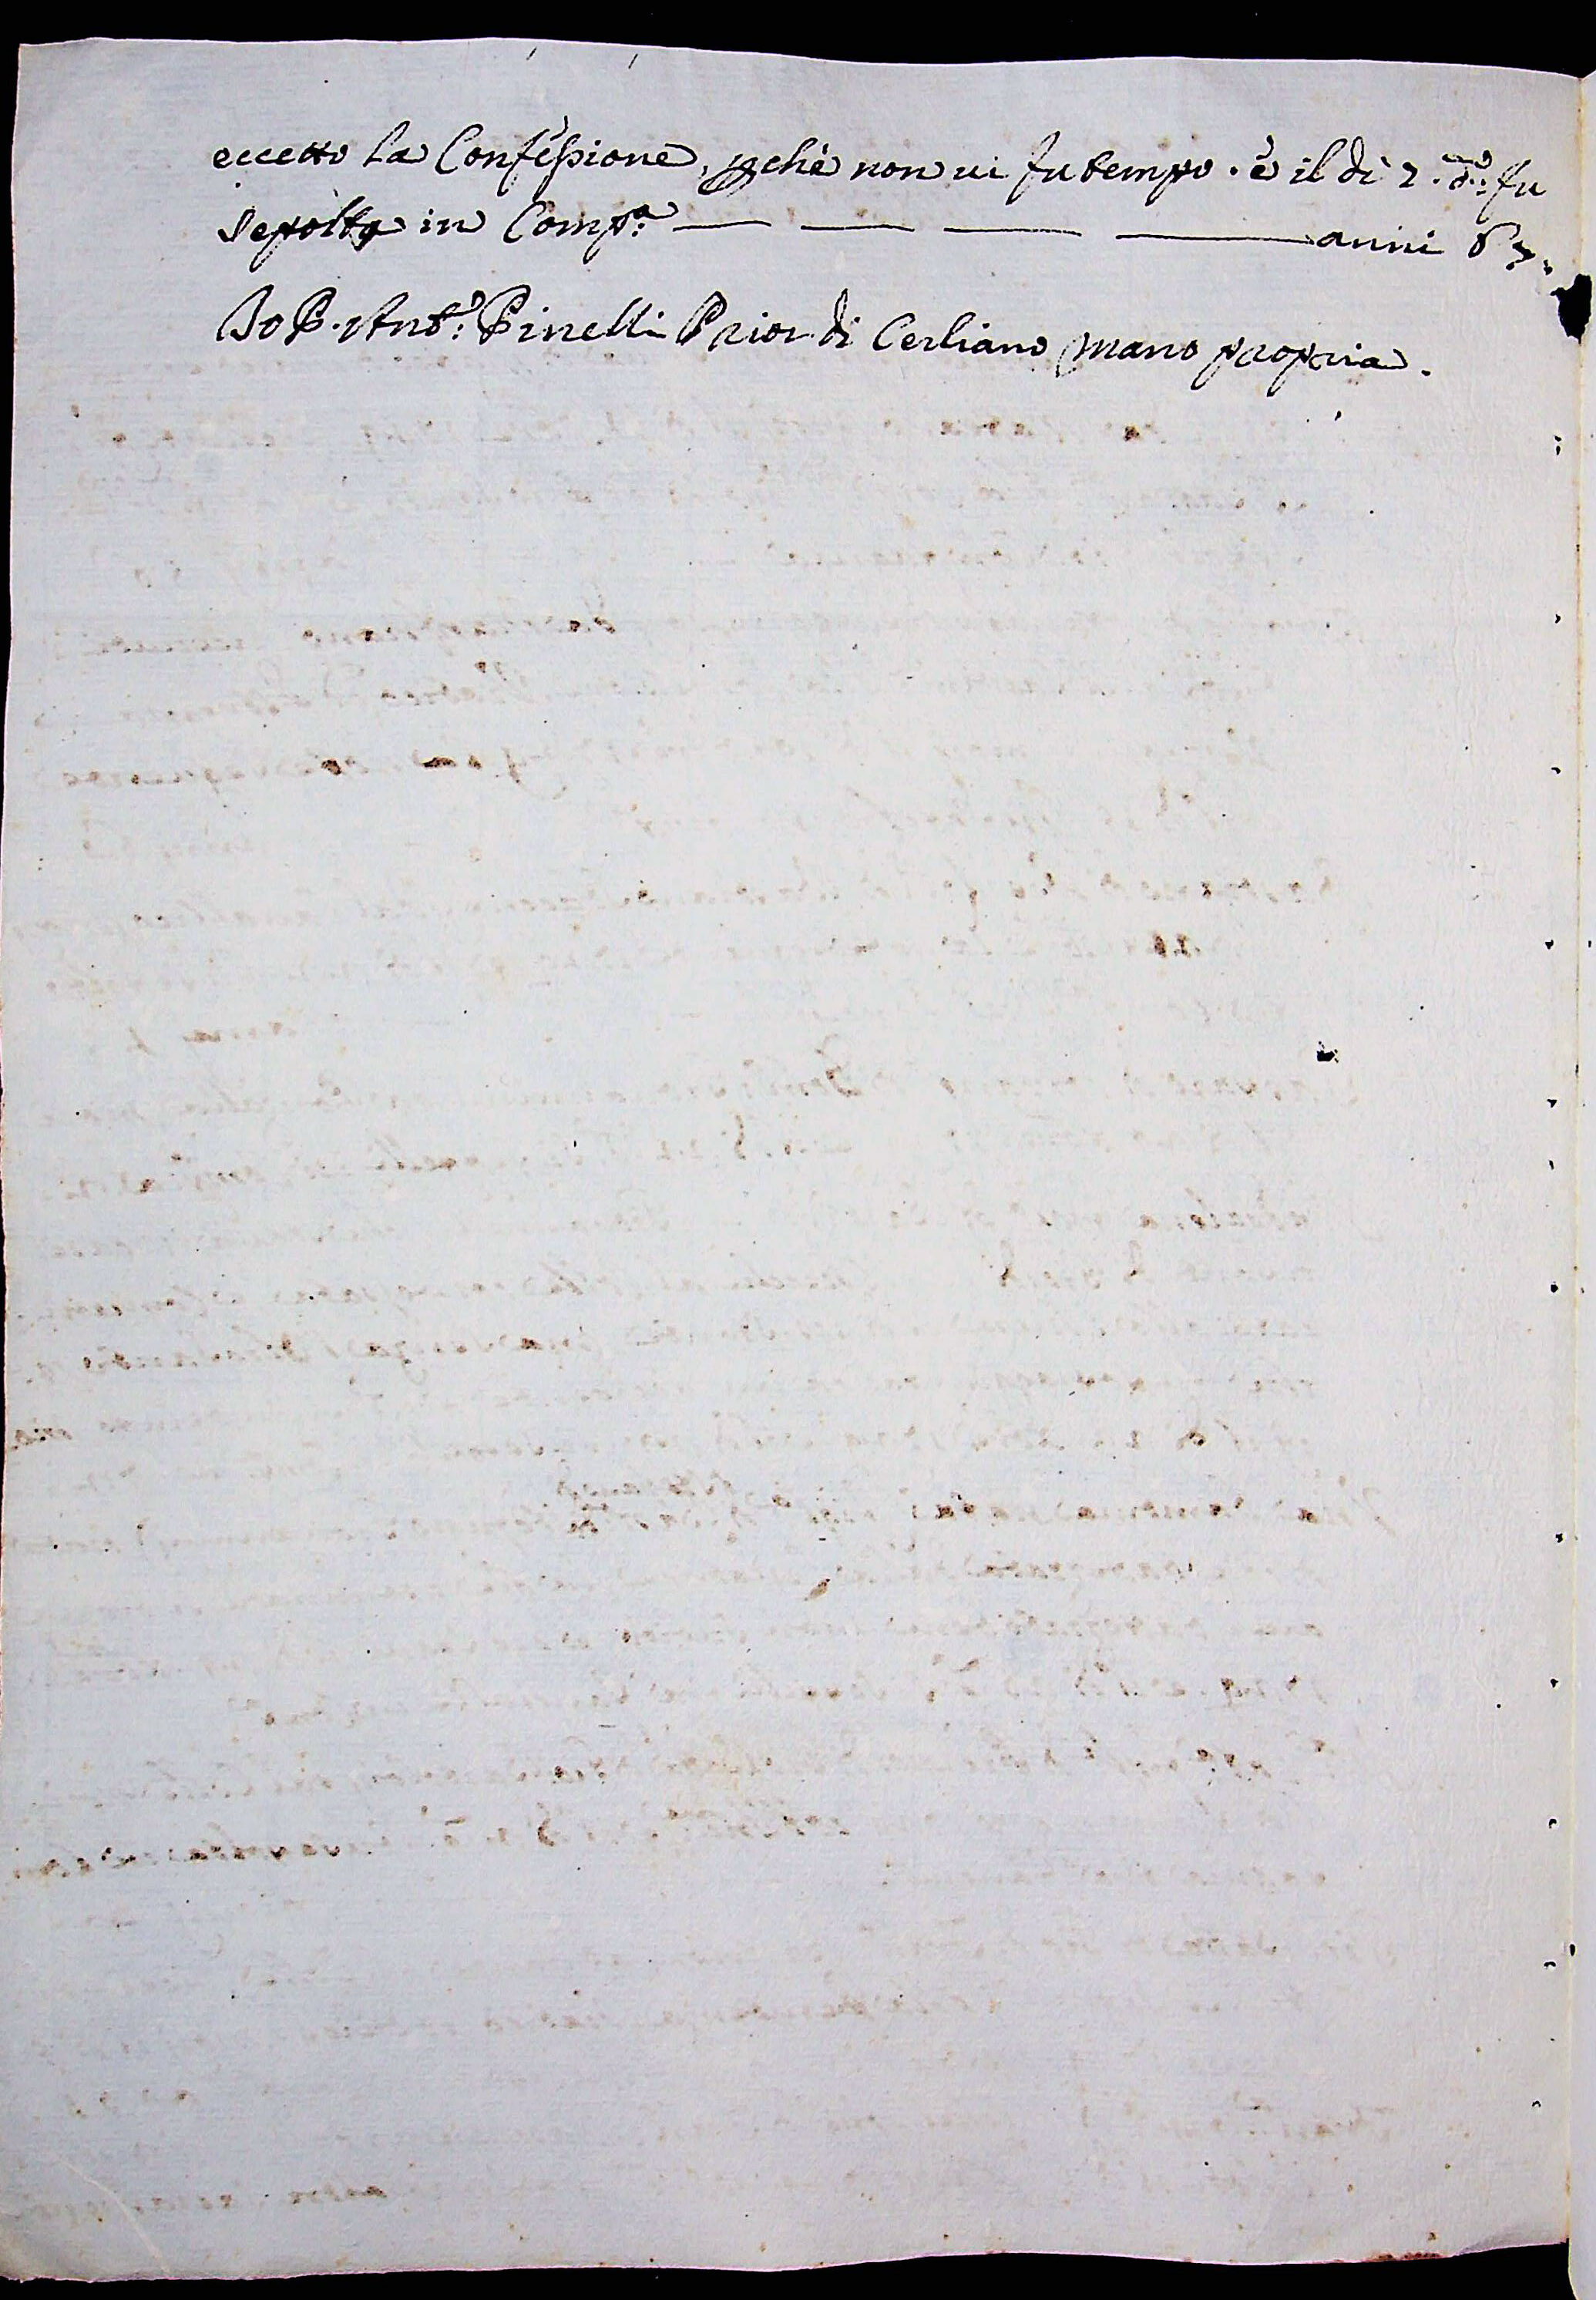 eccetto la Confessione, pche non ui fu tempo. e il dì 2. d.o fu
sepolta in Comp.a — — — — anni 67.
Io P. Ant.o Pinelli Prior di Cerliano mano propria.